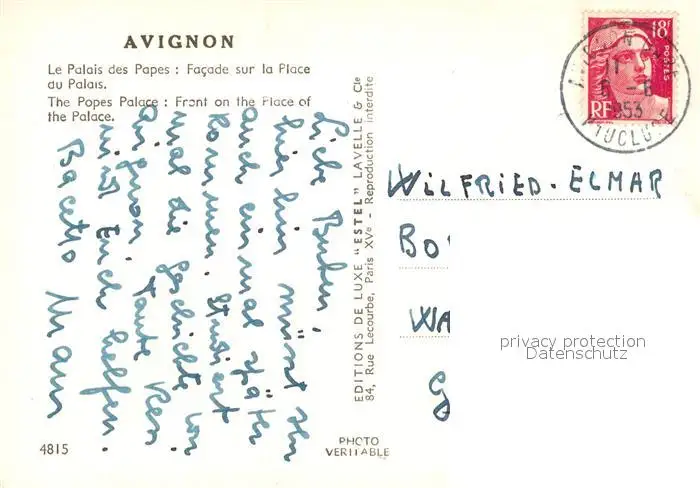 AVIGNON
Le Palais des Papes : Façade sur la Place
du Palais.
The Popes Palace : Front on the Place of
the Palace.
Liebe Buben,
hier hin müsst Ihr
auch einmal später
kommen. Studiert
mal die Geschichte von
Avignon. Tante
wird Euch helfen.
Mami
EDITIONS DE LUXE "ESTEL" LAVELLE & Cie
84, Rue Lecourbe, Paris XVe - Reproduction Interdite
18F
POSTES
RF
AVIGNON
6 -6
1953
VAUCLUSE
WILFRIED-ELMAR
BO
WA
privacy protection
Datenschutz
4815
PHOTO
VERITABLE